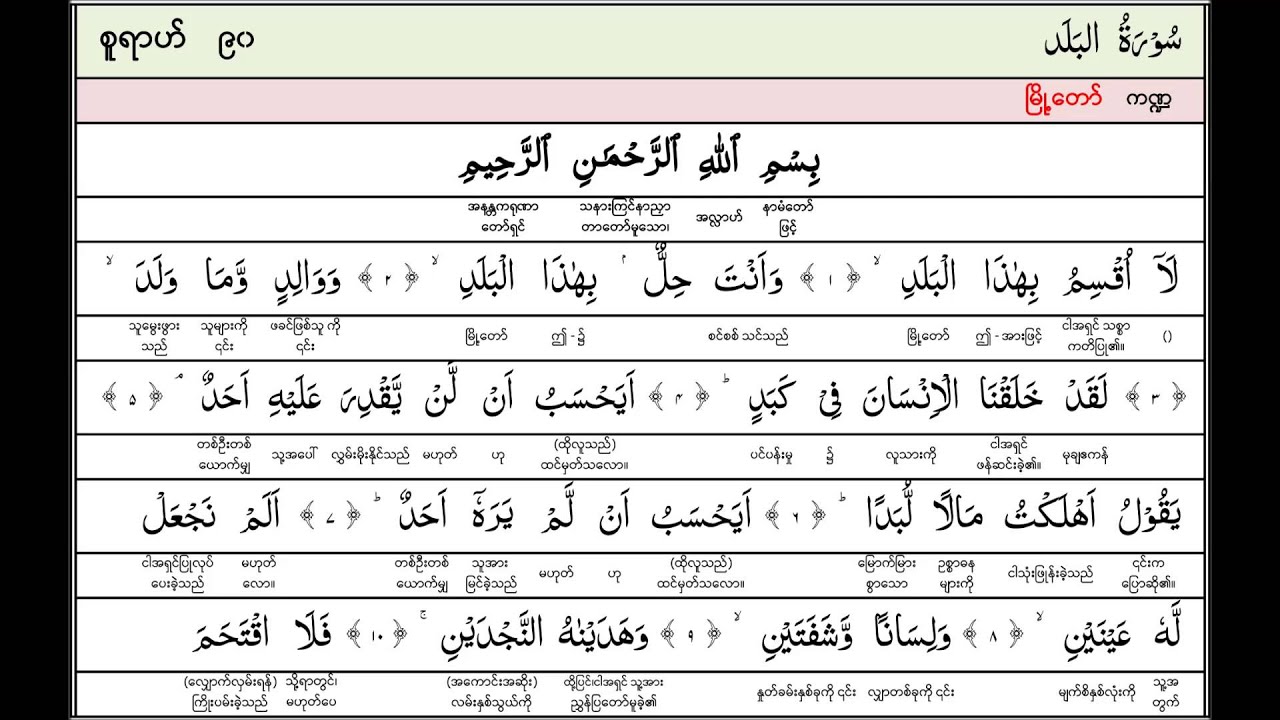 သူရာဟ် ၉၀ سُوْرَةُ الْبَلَد
ကဏ္ဍ မြို့တော်
بِسْمِ ٱللَّهِ ٱلرَّحْمَٰنِ ٱلرَّحِيمِ
နာမံတော်ဖြင့် အလ္လာဟ် သနားကြင်နာညှာတာတော်မူသော၊ အနန္တကရုဏာတော်ရှင်
لَآ اُقْسِمُ بِهٰذَا الْبَلَدِ ۙ ﴿۱﴾ وَاَنْتَ حِلٌّ ۢ بِهٰذَا الْبَلَدِ ۙ ﴿۲﴾ وَوَالِدٍ وَّمَا وَلَدَ ۙ
() ငါအရှင် သစ္စာကတိပြု၏။ ဤ - အားဖြင့် မြို့တော် စင်စစ် သင်သည် ဤ - ၌ မြို့တော် ဖခင်ဖြစ်သူ ကို၎င်း သူများကို၎င်း သူမွေးဖွားသည်
﴿۳﴾ لَقَدْ خَلَقْنَا الْاِنْسَانَ فِىْ كَبَدٍ ؕ ﴿۴﴾ اَيَحْسَبُ اَنْ لَّنْ يَّقْدِرَ عَلَيْهِ اَحَدٌ ۘ ﴿۵﴾
မုချဧကန် ငါအရှင်ဖန်ဆင်းခဲ့၏။ လူသားကို ၌ ပင်ပန်းမှု (ထိုလူသည်) ထင်မှတ်သလော။ ဟု မဟုတ် လွှမ်းမိုးနိုင်သည် သူ့အပေါ် တစ်ဦးတစ်ယောက်မျှ
يَقُوْلُ اَهْلَكْتُ مَالًا لُّبَدًا ؕ ﴿۶﴾ اَيَحْسَبُ اَنْ لَّمْ يَرَهٗۤ اَحَدٌ ؕ ﴿۷﴾ اَلَمْ نَجْعَلْ
၎င်းကပြောဆို၏။ ငါသုံးဖြုန်းခဲ့သည် ဥစ္စာဓနများကို မြောက်မြားစွာသော (ထိုလူသည်) ထင်မှတ်သလော။ ဟု မဟုတ် သူအားမြင်ခဲ့သည် တစ်ဦးတစ်ယောက်မျှ မဟုတ်လော။ ငါအရှင်ပြုလုပ်ပေးခဲ့သည်
لَّهٗ عَيْنَيْنِ ۙ ﴿۸﴾ وَلِسَانًا وَّشَفَتَيْنِ ۙ ﴿۹﴾ وَهَدَيْنٰهُ النَّجْدَيْنِ ۚ ﴿۱۰﴾ فَلَا اقْتَحَمَ
သူ့အတွက် မျက်စိနှစ်လုံးကို လျှာတစ်ခုကို ၎င်း နှုတ်ခမ်းနှစ်ခုကို ၎င်း ထို့ပြင်၊ငါအရှင် သူ့အားညွှန်ပြတော်မူခဲ့၏ (အကောင်းအဆိုး) လမ်းနှစ်သွယ်ကို သို့ရာတွင်၊ မဟုတ်ပေ (လျှောက်လှမ်းရန်) ကြိုးပမ်းခဲ့သည်